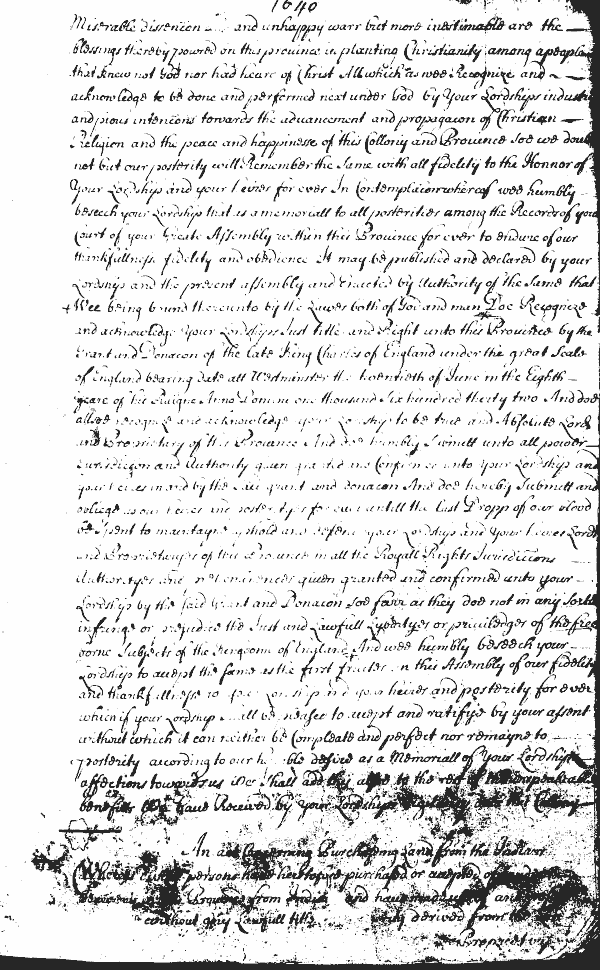 1640
Miserable dissencion and unhappy warr but more inestimable are the
blessings thereby powred on this province in planting Christianity among a people
that knew not God nor had heare of Christ All which as wee Recognize and
acknowledge to be done and performed next under God by Your Lordships industry
and pious intencions towards the advancement and propagacon of Christian
Religion and the peace and happinesse of this Collony and Province soe we doubt
not but our posterity will Remember the Same with all fidelity to the Honnor of
Your Lordship and your heires for ever In Contemplacion whereof wee humbly
beseech your Lordship that as a memoriall to all posterities among the Records of your
Court of your Greate Assembly within this Province for ever to endure of our
thankfullnesse fidelity and obedience It may be published and declared by your
Lordship and the present assembly and Enacted by Authority of the Same that
Wee being bound thereunto by the Lawes both of God and man Doe Recognize
and acknowledge Your Lordships Just title and Right unto this Province by the
Grant and Donacon of the late King Charles of England under the great Seale
of England bearing date att Westminster the twentieth of June in the Eighth
yeare of his Raigne Anno Domini one thousand Six hundred thirty two And doe
allsoe recognize and acknowledge your Lordship to be true and Absolute Lord
and Proprietary of this Province And doe humbly Submitt unto all power
Jurisdiccon and Authority given granted and Confirmed unto Your Lordship and
your heires in and by the Said grant and donacon And doe hereby Submitt and
obliege us our heires and posterityes for ever untill the last Dropp of our blood
be Spent to maintayne uphold and defend your Lordship and Your heires Lords
and Proprietaryes of this Province in all the Royall Rights Jurisdiccions
Authorityes and preheminences given granted and confirmed unto your
Lordship by the said Grant and Donacon Soe farr as they doe not in any Sorte
infringe or prejudice the Just and Lawfull Lybertyes or priviledges of the free
borne Subjects of the Kingdome of England And wee humbly beseech your
Lordship to accept the same as the first fruites in this Assembly of our fidelity
and thankfullnesse to your Lordship and your heires and posterity for ever
which if your Lordship shall be pleased to accept and ratifye by your assent
without which it can neither be Compleate and perfect nor remayne to
posterity according to our humble desire as a Memoriall of Your Lordships
affections towards us Wee Shall add this alsoe to the rest of the unspeakable
benefitts Wee have Received by Your Lordships
An act Concerning Purchaseing Land from the Indians
Whereas persons have heretofore purchased or accepted of
from and have made use of
without any Lawfull title derived from the
Proprietary